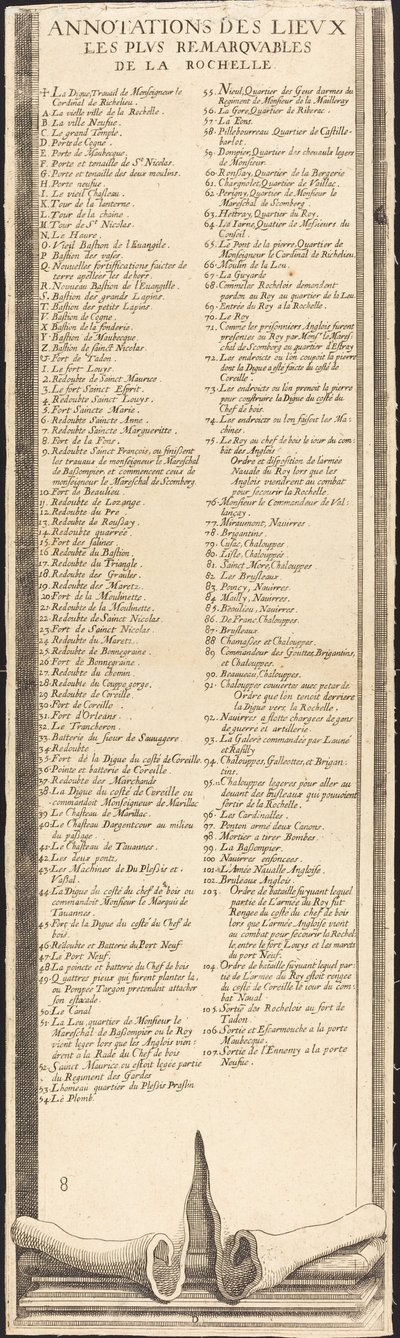 ANNOTATIONS DES LIEVX
LES PLVS REMARQVABLES
DE LA ROCHELLE.
☩ La Digue, Travail de Monseigneur le
Cardinal de Richelieu.
A. La vielle ville de la Rochelle.
B. La ville Neufue.
C. Le grand Temple.
D. Porte de Cogne.
E. Porte de Maubecque.
F. Porte et tenaille de St. Nicolas.
G. Porte et tenaille des deux moulins.
H. Porte neufue.
I. Le vieil Chasteau.
K. Tour de la lanterne.
L. Tour de la chaine.
M. Tour de St. Nicolas.
N. Le Haure.
O. Vieil Bastion de l'Euangile.
P Bastion des vases.
Q. Nouuelles fortiffications faictes de
terre apellees les dehors.
R. Nouueau Bastion de l'Euangille.
S. Bastion des grands Lapins.
T. Bastion des petits Lapins
V. Bastion de Cogne.
X Bastion de la fonderie.
Y. Bastion de Maubecque.
Z. Bastion de sainct Nicolas.
Fort de Tadon.
1. Le fort Louys
2. Redoute de Sainct Maurice.
3. Le fort Sainct Esprit.
4. Redoute Sainct Louys.
5. Fort Saincte Marie.
6. Redoute Saincte Anne.
7. Redoute Saincte Margueritte.
8. Fort de la Fons.
9. Redoute Sainct François, ou finissent
les trauaux de monseigneur le Mareschal
de Bassompier et commencent ceux de
monseigneur le Mareschal de Scomberg.
10. Fort de Beaulieu.
11. Redoute de Lozange.
12. Redoute du Pre
13. Redoute de Roussay.
14. Redoute quarrée.
15. Fort des salines
16 Redoute du Bastion.
17. Redoute du Triangle.
18. Redoute des Graules.
19. Redoute des Maretz.
20. Fort de la Moulinette.
21. Redoute de la Moulinette.
22. Redoute de Sainct Nicolas.
23. Fort de Sainct Nicolas.
24. Redoute du Maretz.
25. Redoute de Bonnegraine.
26 Fort de Bonnegraine.
27. Redoute du chemin
28. Redoute du Couppe gorge.
29 Redoute de Coreille.
30. Fort de Coreille
31. Fort d'Orleans.
32. Le Trancheron.
33. Batterie du sieur de Sauuagere
34. Redoute
35. Fort de la Digue du costé de Coreille.
36. Pointe et batterie de Coreille.
37. Redoute des Marchands
38. La Digue du costé de Coreille ou
commandoit Monseigneur de Marillac
39. Le Chasteau de Marillac.
40. Le Chasteau Dargentcour au milieu
du passage.
41. Le Chasteau de Tauannes.
42. Les deux pontz
43. Les Machines de Du Plessis et
Vassal.
44. La Digue du costé du chef de bois ou
commandoit Monsieur le Marquis de
Tauannes.
45. Fort de la Digue du costé du Chef de
bois.
46. Redoute et Batterie du Port Neuf
47. Le Port Neuf.
48. La pointe et batterie du Chef de bois
49. Quattres pieux qui furent plantes la,
ou Pompée Targon pretendoit attacher
son estacade.
50. Le Canal
51. La Leu, quartier de Monsieur le
Mareschal de Bassompier ou le Roy
vient loger lors que les Anglois vien:
drent a la Rade du Chef de bois
52. Sainct Maurice, ou estoit logée partie
du Regiment des Gardes
53. Lhomeau quartier du Plessis Praslin
54. Le Plomb.
55. Nieul, Quartier des Gens darmes du
Regiment de Monsieur de la Mailleray
56. La Gore, Quartier de Riberac.
57. La Eons.
58. Pilleboureau Quartier de Castille-
barlot.
59. Dompier, Quartier des cheuaule legers
de Monsieur
60. Ronsay, Quartier de la Bergerie
61. Chargnolet, Quartier de Vaillac.
62. Perigny, Quartier de Monsieur le
Mareschal de Scomberg.
63. Hettray, Quartier du Roy.
64. La Iarne, Quatier de Messieurs du
Conseil.
65. Le Pont de la pierre, Quartier de
Monseigneur le Cardinal de Richelieu.
66. Moulin de la Leu.
67. La Guyarde
68. Comme les Rochelois demandent
pardon au Roy au quartier de la Leu
69. Entrée du Roy a la Rochelle.
70. Le Roy
71. Comme les prisonniers Anglois furent
presentes au Roy par Monsr. le Mares-
chal de Scomberg au quartier d'Estray
72. Les endroicts ou lon coupoit la pierre
dont la Digue a esté faicte du costé de
Coreille.
73. Les endroicts ou lon prenoit la pierre
pour construire la Digue du costé du
Chef de bois.
74. Les endroicts ou lon faisoit les Ma-
chines.
75. Le Roy au chef de bois le iour du com-
bat des Anglois
Ordre et disposition de larmée
Nauale du Roy lors que les
Anglois viendrent au combat
pour secourir la Rochelle.
76. Monsieur le Commandeur de Val:
lançay.
77. Miraumont, Nauirres.
78. Brigantins.
79. Cusac, Chalouppes
80. Lisle, Chalouppes
81. Sainct More, Chalouppes
82. Les Brusleaux
83. Poincy, Nauirres.
84. Mailly, Nauirres.
85. Beaulieu, Nauirres.
86. De Franc. Chalouppes.
87. Brusleaux
88 Chamasses et Chalouppes.
89 Commandeur des Gouttes, Brigantins,
et Chalouppes
90. Beauueau, Chalouppes.
91. Chalouppes couuertes auec petar de
Ordre que lon tenoit derriere
la Digue vers la Rochelle.
92. Nauirres a flotte chargees de gens
de guerre et artillerie.
93. La Galere commandée par Launé
et Rasilly
94. Chalouppes, Galleottes, et Brigan-
tins.
95. Chalouppes legeres pour aller au
deuant des brusleaux qui pouuoient
sortir de la Rochelle.
96. Les Cardinalles.
97. Ponton armé deux Canons.
98. Mortier a tirer Bombes.
99. La Bassompier.
100 Nauirres enfoncees.
101. L'Armée Naualle Angloise
102. Bruleaux Anglois.
103. Ordre de bataille suyuant lequel
partie de L'Armée du Roy fut
Rengée du costé du chef de bois
lors que L'Armée Angloise vient
au combat pour secourir la Rochel
le, entre le fort Louys et les marets
du port Neuf.
104. Ordre de bataille suyuant lequel par=
tie de L'Armée du Roy estoit rengée
du costé de Coreille le iour du com=
bat Naual.
105. Sortie des Rochelois au fort de
Tadon.
106. Sortie et Escarmouche a la porte
Maubecque.
107. Sortie de l'Ennemy a la porte
Neufue.
8
D